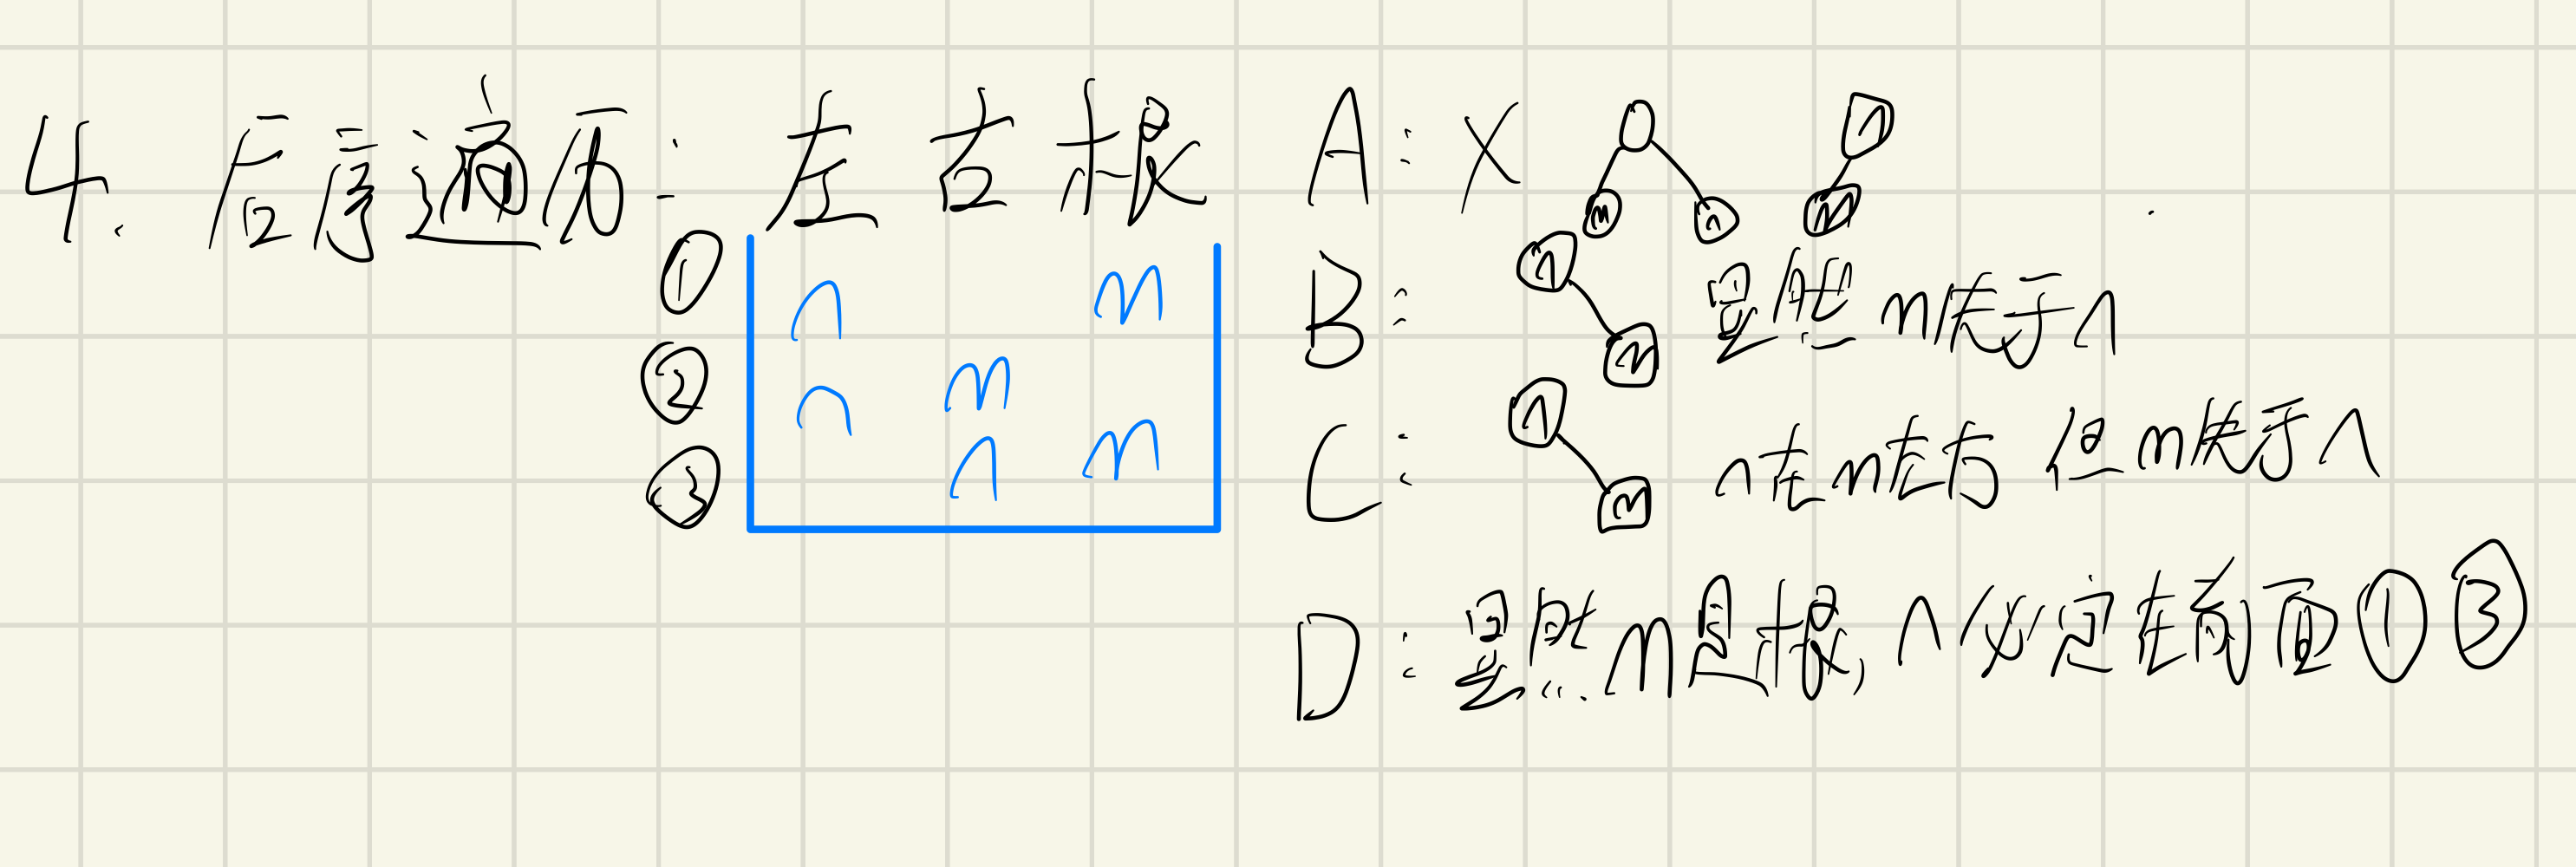 4. 后序遍历: 左 右 根
① n m
② n m
③ n m
A: X
m n n m
B: n m 显然 m先于n
C: n m n在m左方 但m先于n
D: 显然m是根, n必定在前面①③